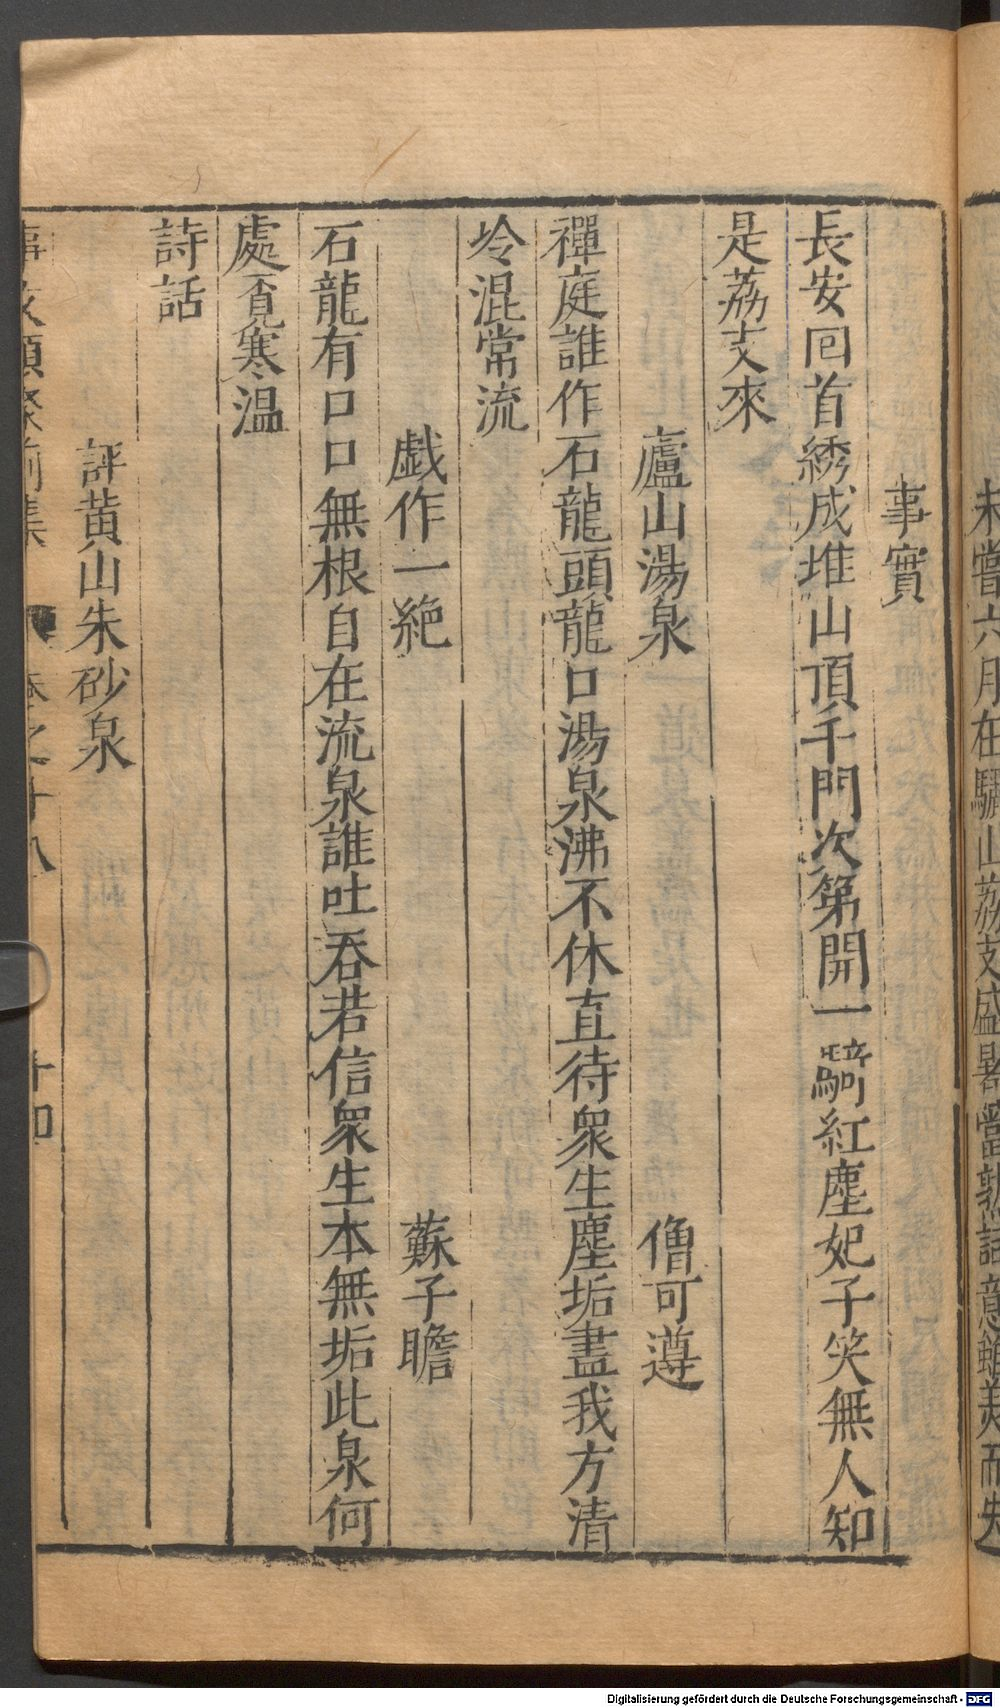 未嘗六月在驪山荔支盛暑當熟詩意雖美而失
事實
長安回首綉成堆山頂千門次第開一騎紅塵妃子笑無人知
是荔支來
廬山湯泉　僧可遵
禪庭誰作石龍頭龍口湯泉沸不休直待衆生塵垢盡我方清
冷混常流
戯作一絶　蘇子瞻
石龍有口口無根自在流泉誰吐吞若信衆生本無垢此泉何
處覔寒温
詩話
評黄山朱砂泉
事文類聚前集　卷之十八　十四
Digitalisierung gefördert durch die Deutsche Forschungsgemeinschaft - DFG